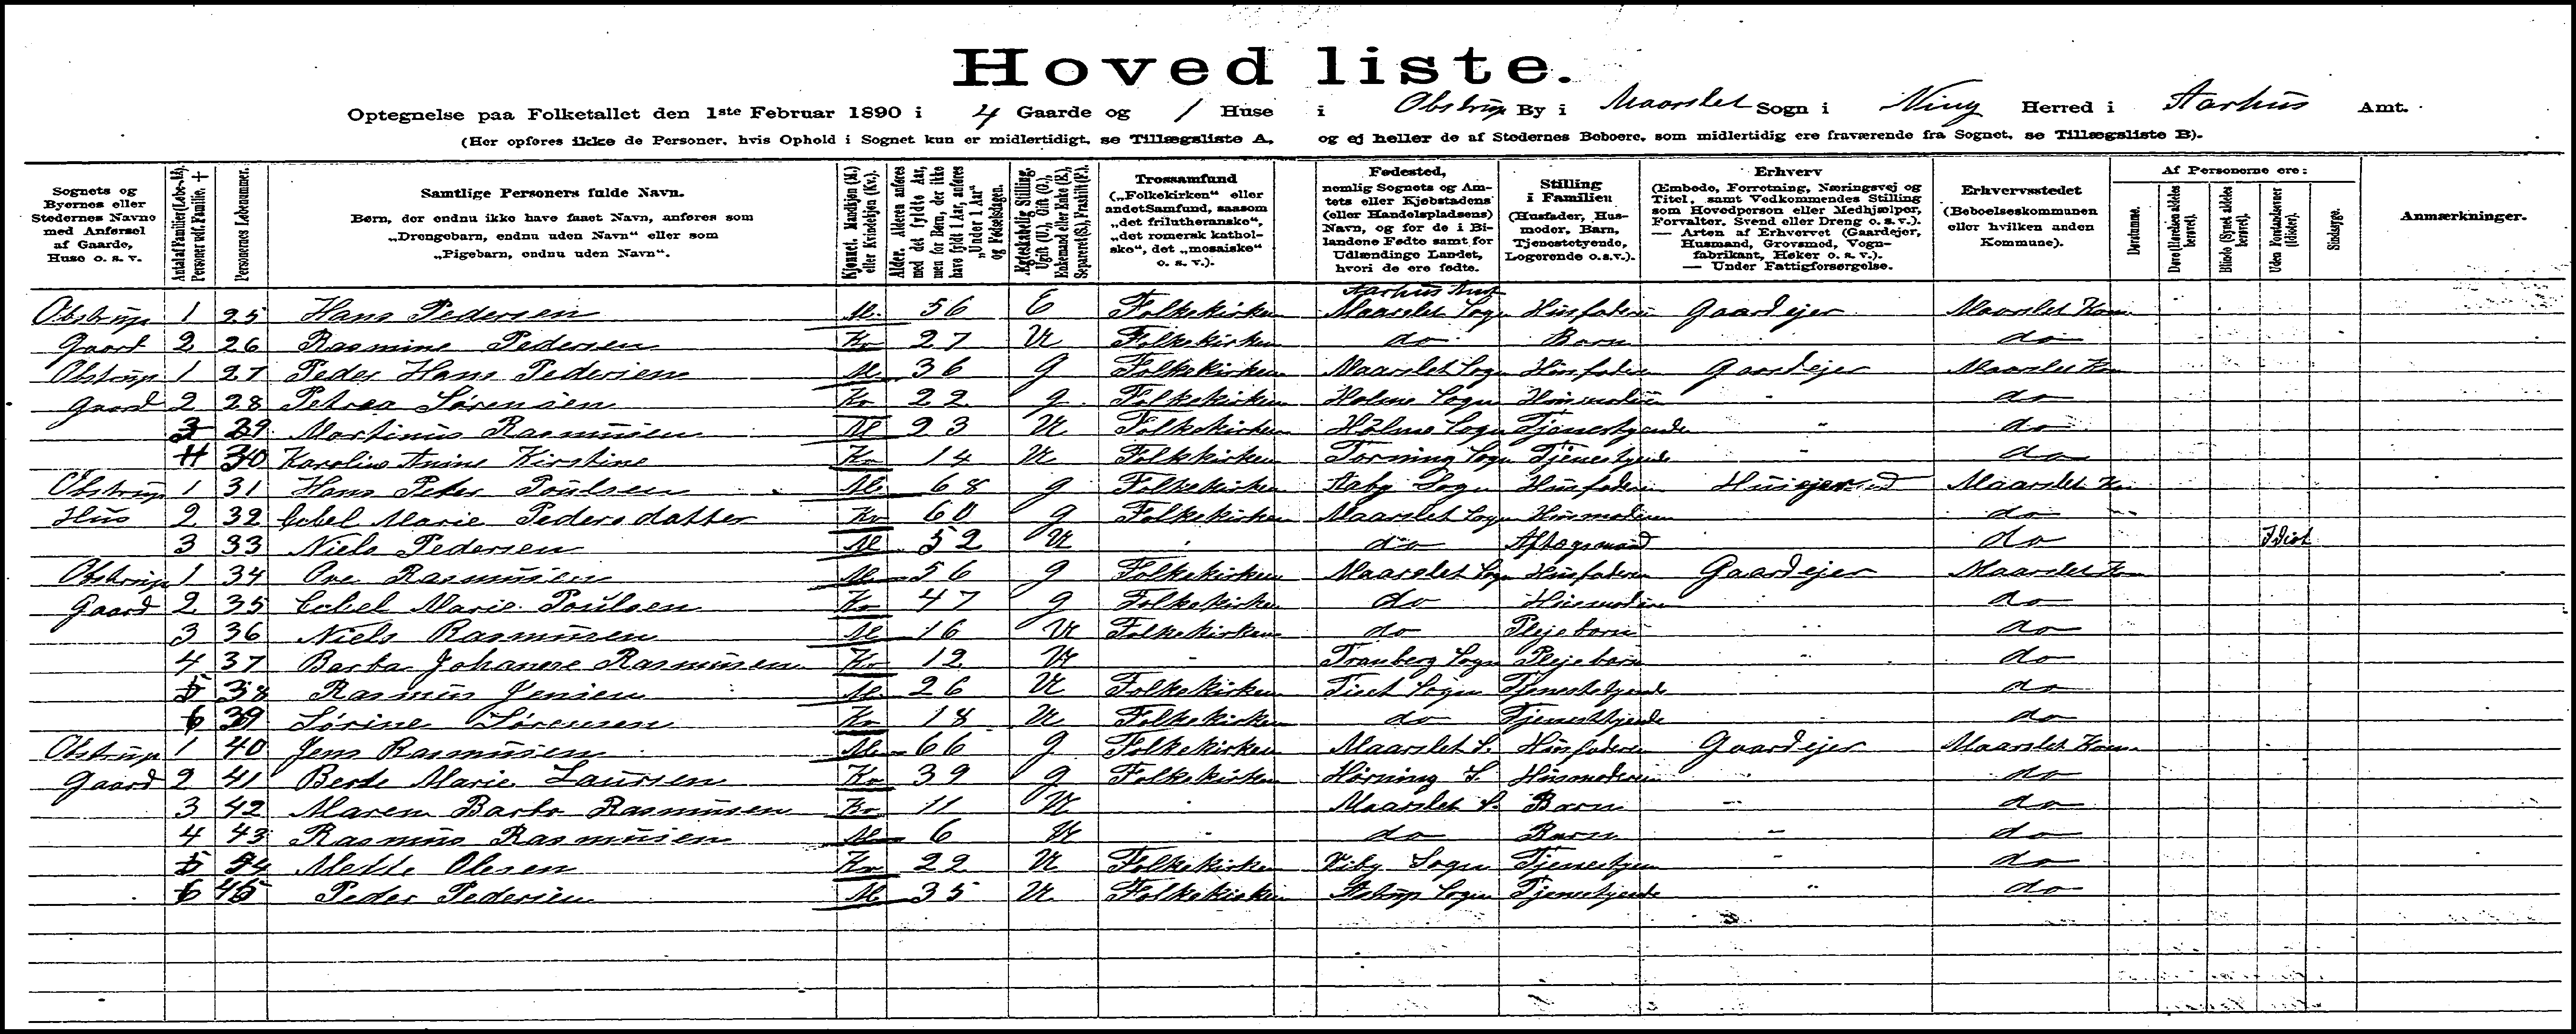 Hoved liste.
Optegnelse paa Folketallet den 1ste Februar 1890 i 4 Gaarde og 1 Huse i Obstrup By i Maarslet Sogn i Ning Herred i Aarhus Amt.
(Her opføres ikke de Personer, hvis Ophold i Sognet kun er midlertidigt, se Tillægsliste A, og ej heller de af Stedernes Beboere, som midlertidig ere fraværende fra Sognet, se Tillægsliste B).
Sognets og Byernes eller Stedernes Navne med Anførsel af Gaarde, Huse o. s. v.
Personernes Løbenummer.
Samtlige Personers fulde Navn.
Børn, der endnu ikke have faaet Navn, anføres som „Drengebarn, endnu uden Navn“ eller som „Pigebarn, endnu uden Navn“.
Kjønnet. Mandkjøn (M.) eller Kvindekjøn (Kv.).
Alder. Alderen anføres med det fyldte Aar, men for Børn, der ikke have fyldt 1 Aar, anføres „Under 1 Aar“ og Fødselsdagen.
Ægteskabelig Stilling. Ugift (U.), Gift (G.), Enkemand eller Enke (E.), Separeret (S.), Fraskilt (F.).
Trossamfund („Folkekirken“ eller andet Samfund, saasom „det frilutheranske“, „det romersk katholske“, det „mosaiske“ o. s. v.).
Fødested, nemlig Sognets og Amtets eller Kjøbstadens (eller Handelspladsens) Navn, og for de i Bilandene Fødte samt for Udlændinge Landet, hvori de ere fødte.
Stilling i Familien (Husfader, Husmoder, Barn, Tjenestetyende, Logerende o.s.v.).
Erhverv (Embede, Forretning, Næringsvej og Titel, samt Vedkommendes Stilling som Hovedperson eller Medhjælper, Forvalter, Svend eller Dreng o. s. v.). — Arten af Erhvervet (Gaardejer, Husmand, Grovsmed, Vognfabrikant, Høker o. s. v.). — Under Fattigforsørgelse.
Erhvervsstedet (Beboelseskommunen eller hvilken anden Kommune).
Af Personerne ere:
Døvstumme.
Døve (Hørelsen aldeles berøvet).
Blinde (Synet aldeles berøvet).
Uden Forstandsevner (Idioter).
Sindssyge.
Anmærkninger.
Aarhus Amt
Obstrup 1 25 Hans Pedersen M. 56 E Folkekirken Maarslet Sogn Husfader Gaardejer Maarslet Kom
Gaard 2 26 Rasmine Pedersen Kv 27 U Folkekirken do Barn do
Obstrup 1 27 Peder Hans Pedersen M 36 g Folkekirken Maarslet Sogn Husfader Gaardejer Maarslet Kom
Gaard 2 28 Petrea Sørensen Kv 22 g Folkekirken Holme Sogn Husmoder " do
3 29 Martinus Rasmusen M 23 U Folkekirken Holme Sogn Tjenestyende " do
4 30 Karoline Anine Kirstine Kv 14 U Folkekirken Torning Sogn Tjenestyende " do
Obstrup 1 31 Hans Peter Poulsen M. 68 g Folkekirken Aaby Sogn Husfader Maarslet Kom
Hus 2 32 Cobel Marie Pedersdatter Kv 60 g Folkekirken Maarslet Sogn Husmoderen do
3 33 Niels Pedersen M 52 U do Aftægsmand do Idiot
Obstrup 1 34 Ove Rasmusen M 56 g Folkekirken Maarslet Sogn Husfaderen Gaardejer Maarslet Kom
Gaard 2 35 Cobel Marie Poulsen Kv 47 g Folkekirken do Husmoderen do
3 36 Niels Rasmusen M 16 U Folkekirken do Plejebarn " do
4 37 Barbar Johanne Rasmusen Kv 12 U - Tranberg Sogn Plejebarn " do
5 38 Rasmus Jensen M. 26 U Folkekirken Tiset Sogn Tjenestetyende do
6 39 Sørine Sørensen Kv 18 U Folkekirken do Tjenestetyende do
Obstrup 1 40 Jens Rasmusen M 66 g Folkekirken Maarslet S. Husfaderen Gaardejer Maarslet Kom
Gaard 2 41 Berte Marie Laursen Kv 39 g Folkekirken Hørning S Husmoderen " do
3 42 Maren Barbr Rasmusen Kv 11 U - Maarslet S. Barn " do
4 43 Rasmus Rasmusen M 6 U - do Barn " do
5 44 Mette Olesen Kv 22 U Folkekirken Viby Sogn Tjenestyen " do
6 45 Peder Pedersen M 35 U Folkekirken Astrup Sogn Tjenestyende " do